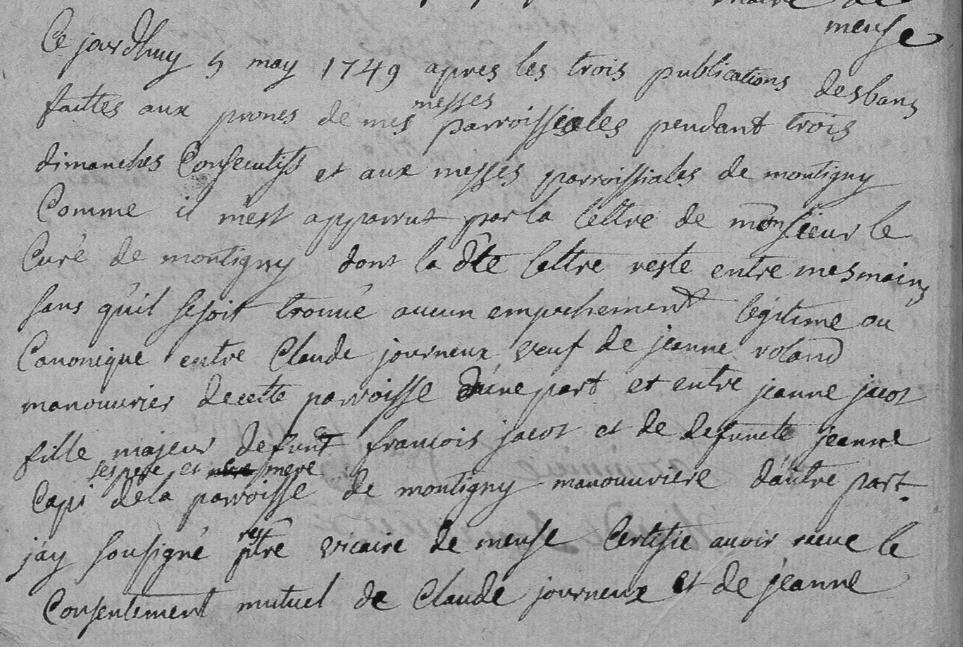 meuse
Ce jourdhuy 5 may 1749 apres les trois publications desbans
faittes aux prones de mes messes parroissiales pendant trois
dimanches Consecutifs et aux messes parroissiales de montigny
Comme il m'est apparrut par la lettre de monsieur le
Curé de montigny dont la dte lettre reste entre mesmains
sans qu'il se soit trouvé aucun empechement légitime ou
Canonique entre Claude journeux veuf de jeanne roland
manouvrier decette parroisse d'une part et entre jeanne jacot
fille majeur defunt francois jacot et de defuncte jeanne
Capi ses pere et mere dela parroisse de montigny manouvriere d'autre part
jay sousigné ptre vicaire de meuse Certifie avoir receue le
Consentement mutuel de Claude journeux et de jeanne